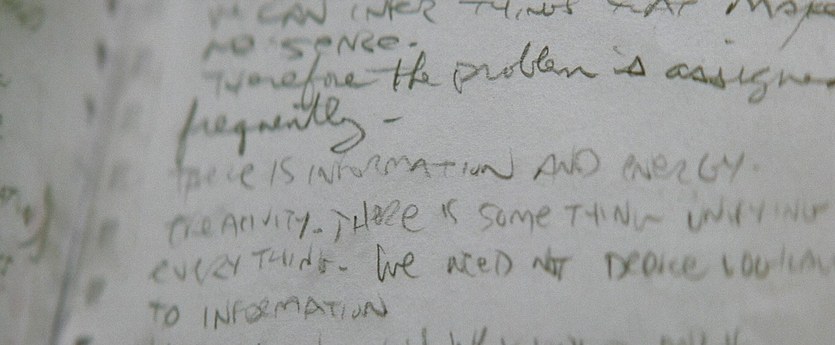 CAN INFER THINGS THAT MAKE
NO SENSE.
Therefore the problem is assigned
frequently -
THERE IS INFORMATION AND ENERGY.
CREATIVITY. THERE IS SOME THING UNIFYING
EVERY THING. WE NEED NOT
TO INFORMATION